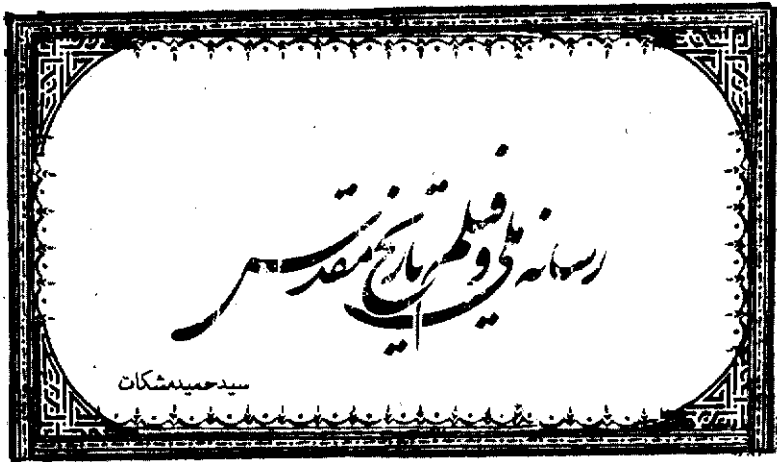 رسانه ملی و فیلم تاریخ مقدس
سید حمید مشکات